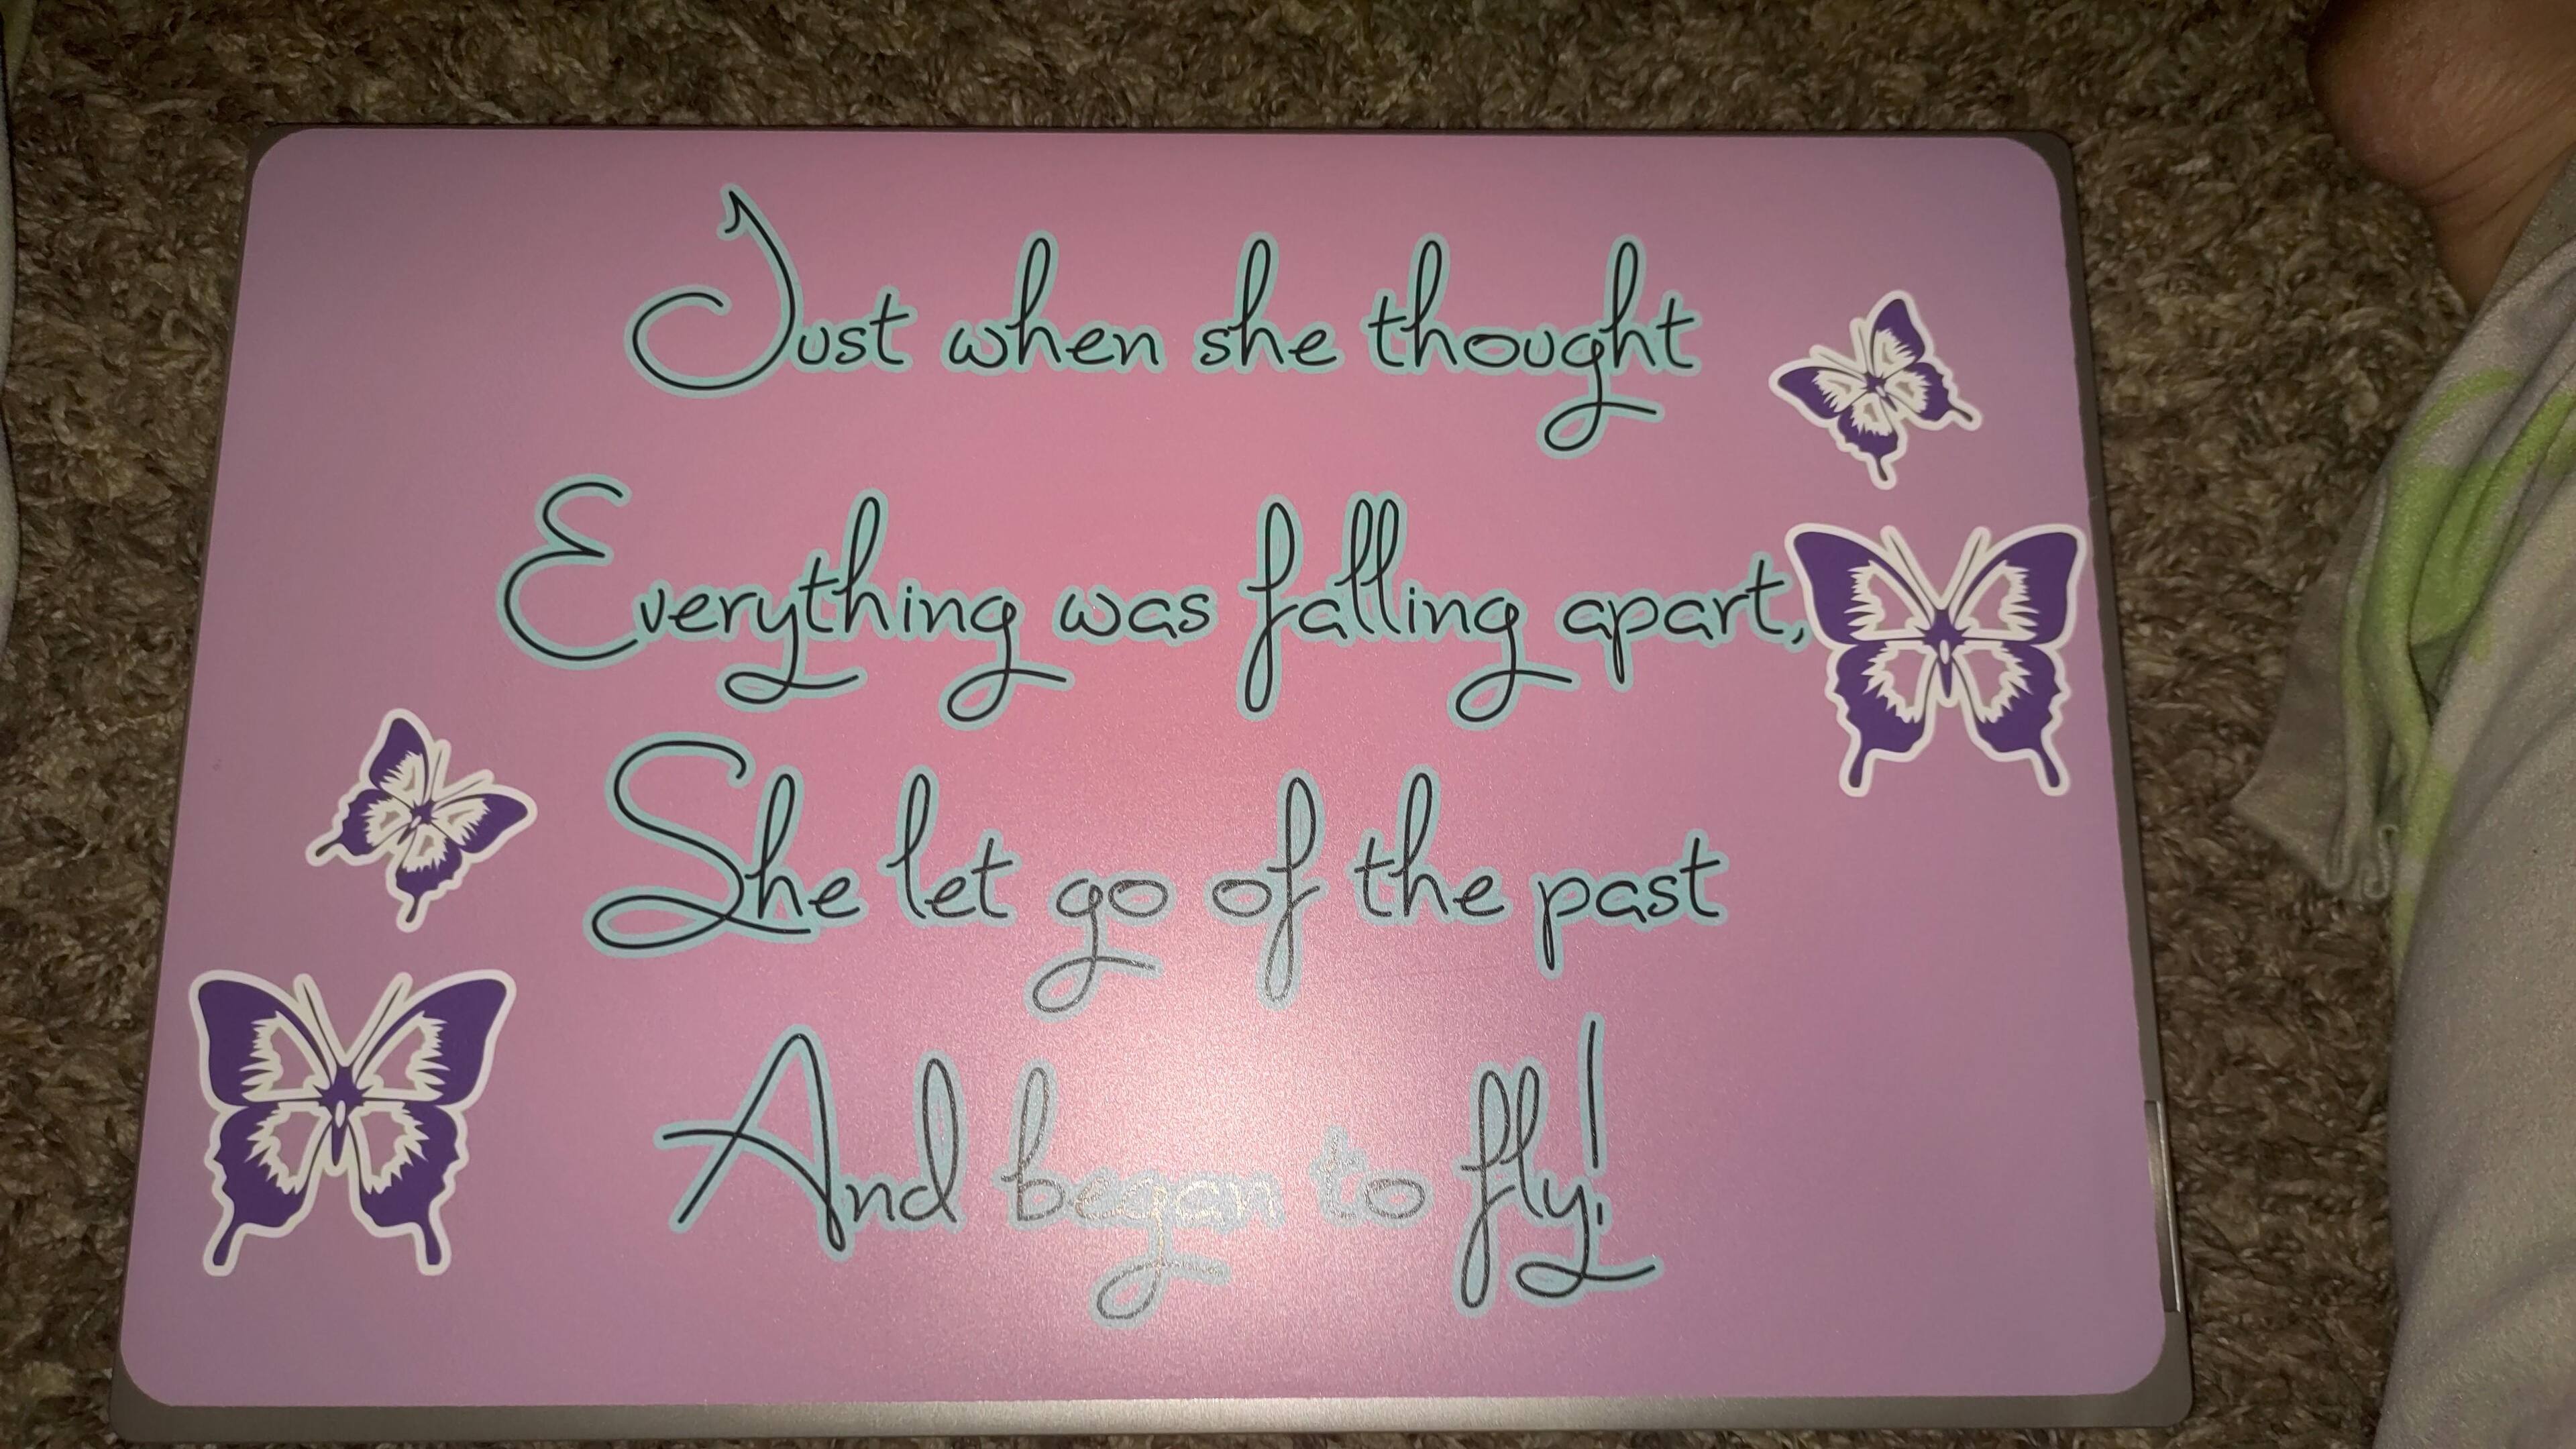 Just when she thought
Everything was falling apart,
She let go of the past
And began to fly!